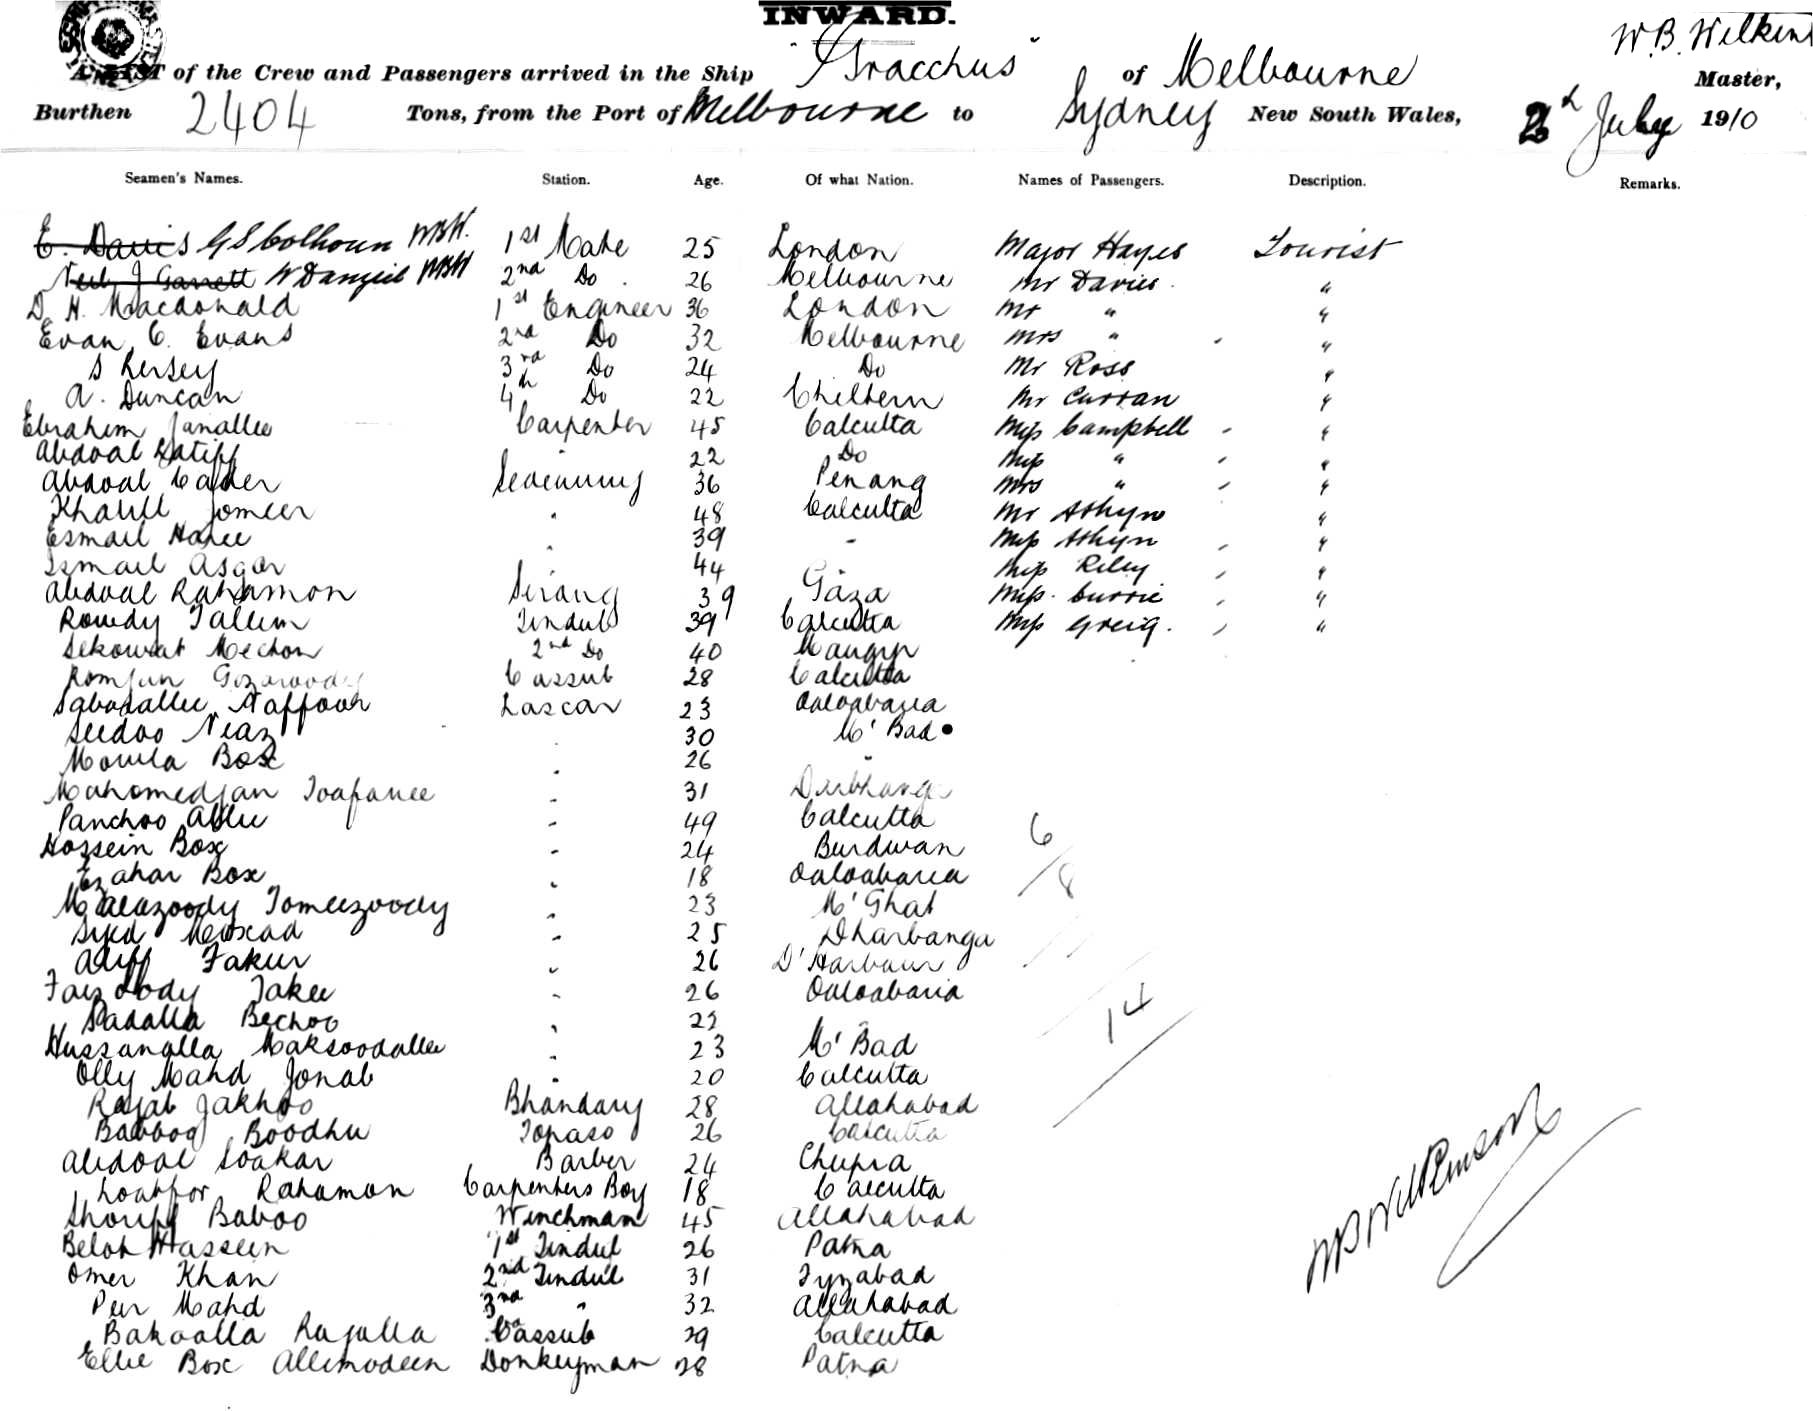 INWARD.
W.B. Wilkins
A LIST of the Crew and Passengers arrived in the Ship "Gracchus" of Melbourne Master,
Burthen 2404 Tons, from the Port of Melbourne to Sydney New South Wales, 2d July 1910
Seamen's Names. Station. Age. Of what Nation. Names of Passengers. Description. Remarks.
E. Davies G S Colhoun WBW. 1st Mate 25 London Major Hayes Tourist
Neil J Garrett W WBW 2nd Do. 26 Melbourne Mr Davies. "
D. H. Macdonald 1st Engineer 36 London Mr " "
Evan C. Evans 2nd Do 32 Melbourne Mrs " "
S Kersey 3rd Do 24 Do Mr Ross "
A. Duncan 4th Do 22 Chiltern Mr Curran "
Ebrahim Janallee Carpenter 45 Calcutta Miss Campbell "
Abdoal Latiff " 22 Do Miss " "
Abdoal Cader 36 Penang Mrs " "
Khalill Jomeer " 48 Calcutta Mr Athyn "
Esmail Hajee " 39 " Miss Athyn "
Ismail Asgar " 44 Miss Riley "
Abdoal Rahamon Serang 39 Gaza Miss. Currie "
Romdy Tallim Tindul 39 Calcutta Miss Greig. "
Sekowat Mechon 2nd Do 40
Romjan Cassub 28 Calcutta
Sabodallee Naffoor Lascar 23 Ooloobaria
Seedoo Neaz " 30 M' Bad
Mowla Box " 26 "
Mahomedjan Toofanee " 31 Durbhanga
Panchoo Allee " 49 Calcutta
Hossein Box " 24 Burdwan 6
Ezahar Box " 18 Ooloobaria /8
Tomeezoody " 23 M' Ghat
Syed " 25 Dharbanga
Aliff Fakir " 26 D' Harbour
Faizoody Takee " 26 Ooloobaria
Sadalla Bechoo " 22 14
Hussanalla Maksoodallee " 23 M' Bad
Olly Mahd Jonab " 20 Calcutta
Rajab Jakhoo Bhandary 28 Allahabad
Babboo Boodhu Topaso 26 Calcutta
Abdoal Soakar Barber 24 Chupra
Loatffor Rahamon Carpenters Boy 18 Calcutta
Shoriff Baboo Winchman 45 Allahabad
Belot Hassein 1st Tindul 26 Patna
Omer Khan 2nd Tindul 31 Fyzabad
Peer Mahd 3rd " 32 Allahabad
Bakoalla Rajulla Cassub 29 Calcutta
Ellie Box Allimodeen Donkeyman 28 Patna
WB Wilkinson